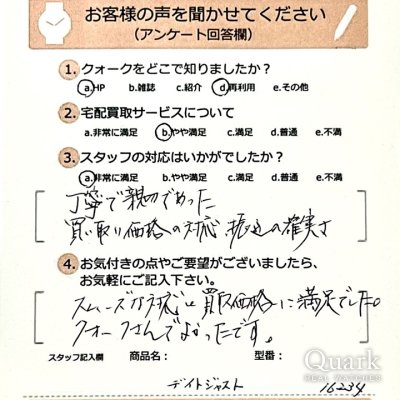 お客様の声を聞かせてください
(アンケート回答欄)
1. クォークをどこで知りましたか？
a.HP b.雑誌 c.紹介 d.再利用 e.その他
2. 宅配買取サービスについて
a.非常に満足 b.やや満足 c.満足 d.普通 e.不満
3. スタッフの対応はいかがでしたか？
a.非常に満足 b.やや満足 c.満足 d.普通 e.不満
丁寧で親切であった
買い取り価格の対応、振込の確実さ
4. お気付きの点やご要望がございましたら、
お気軽にご記入下さい。
スムーズな対応と買取価格に満足でした。
クォークさんでよかったです。
スタッフ記入欄 商品名： 型番：
デイトジャスト 16234
Quark
REAL WATCHES